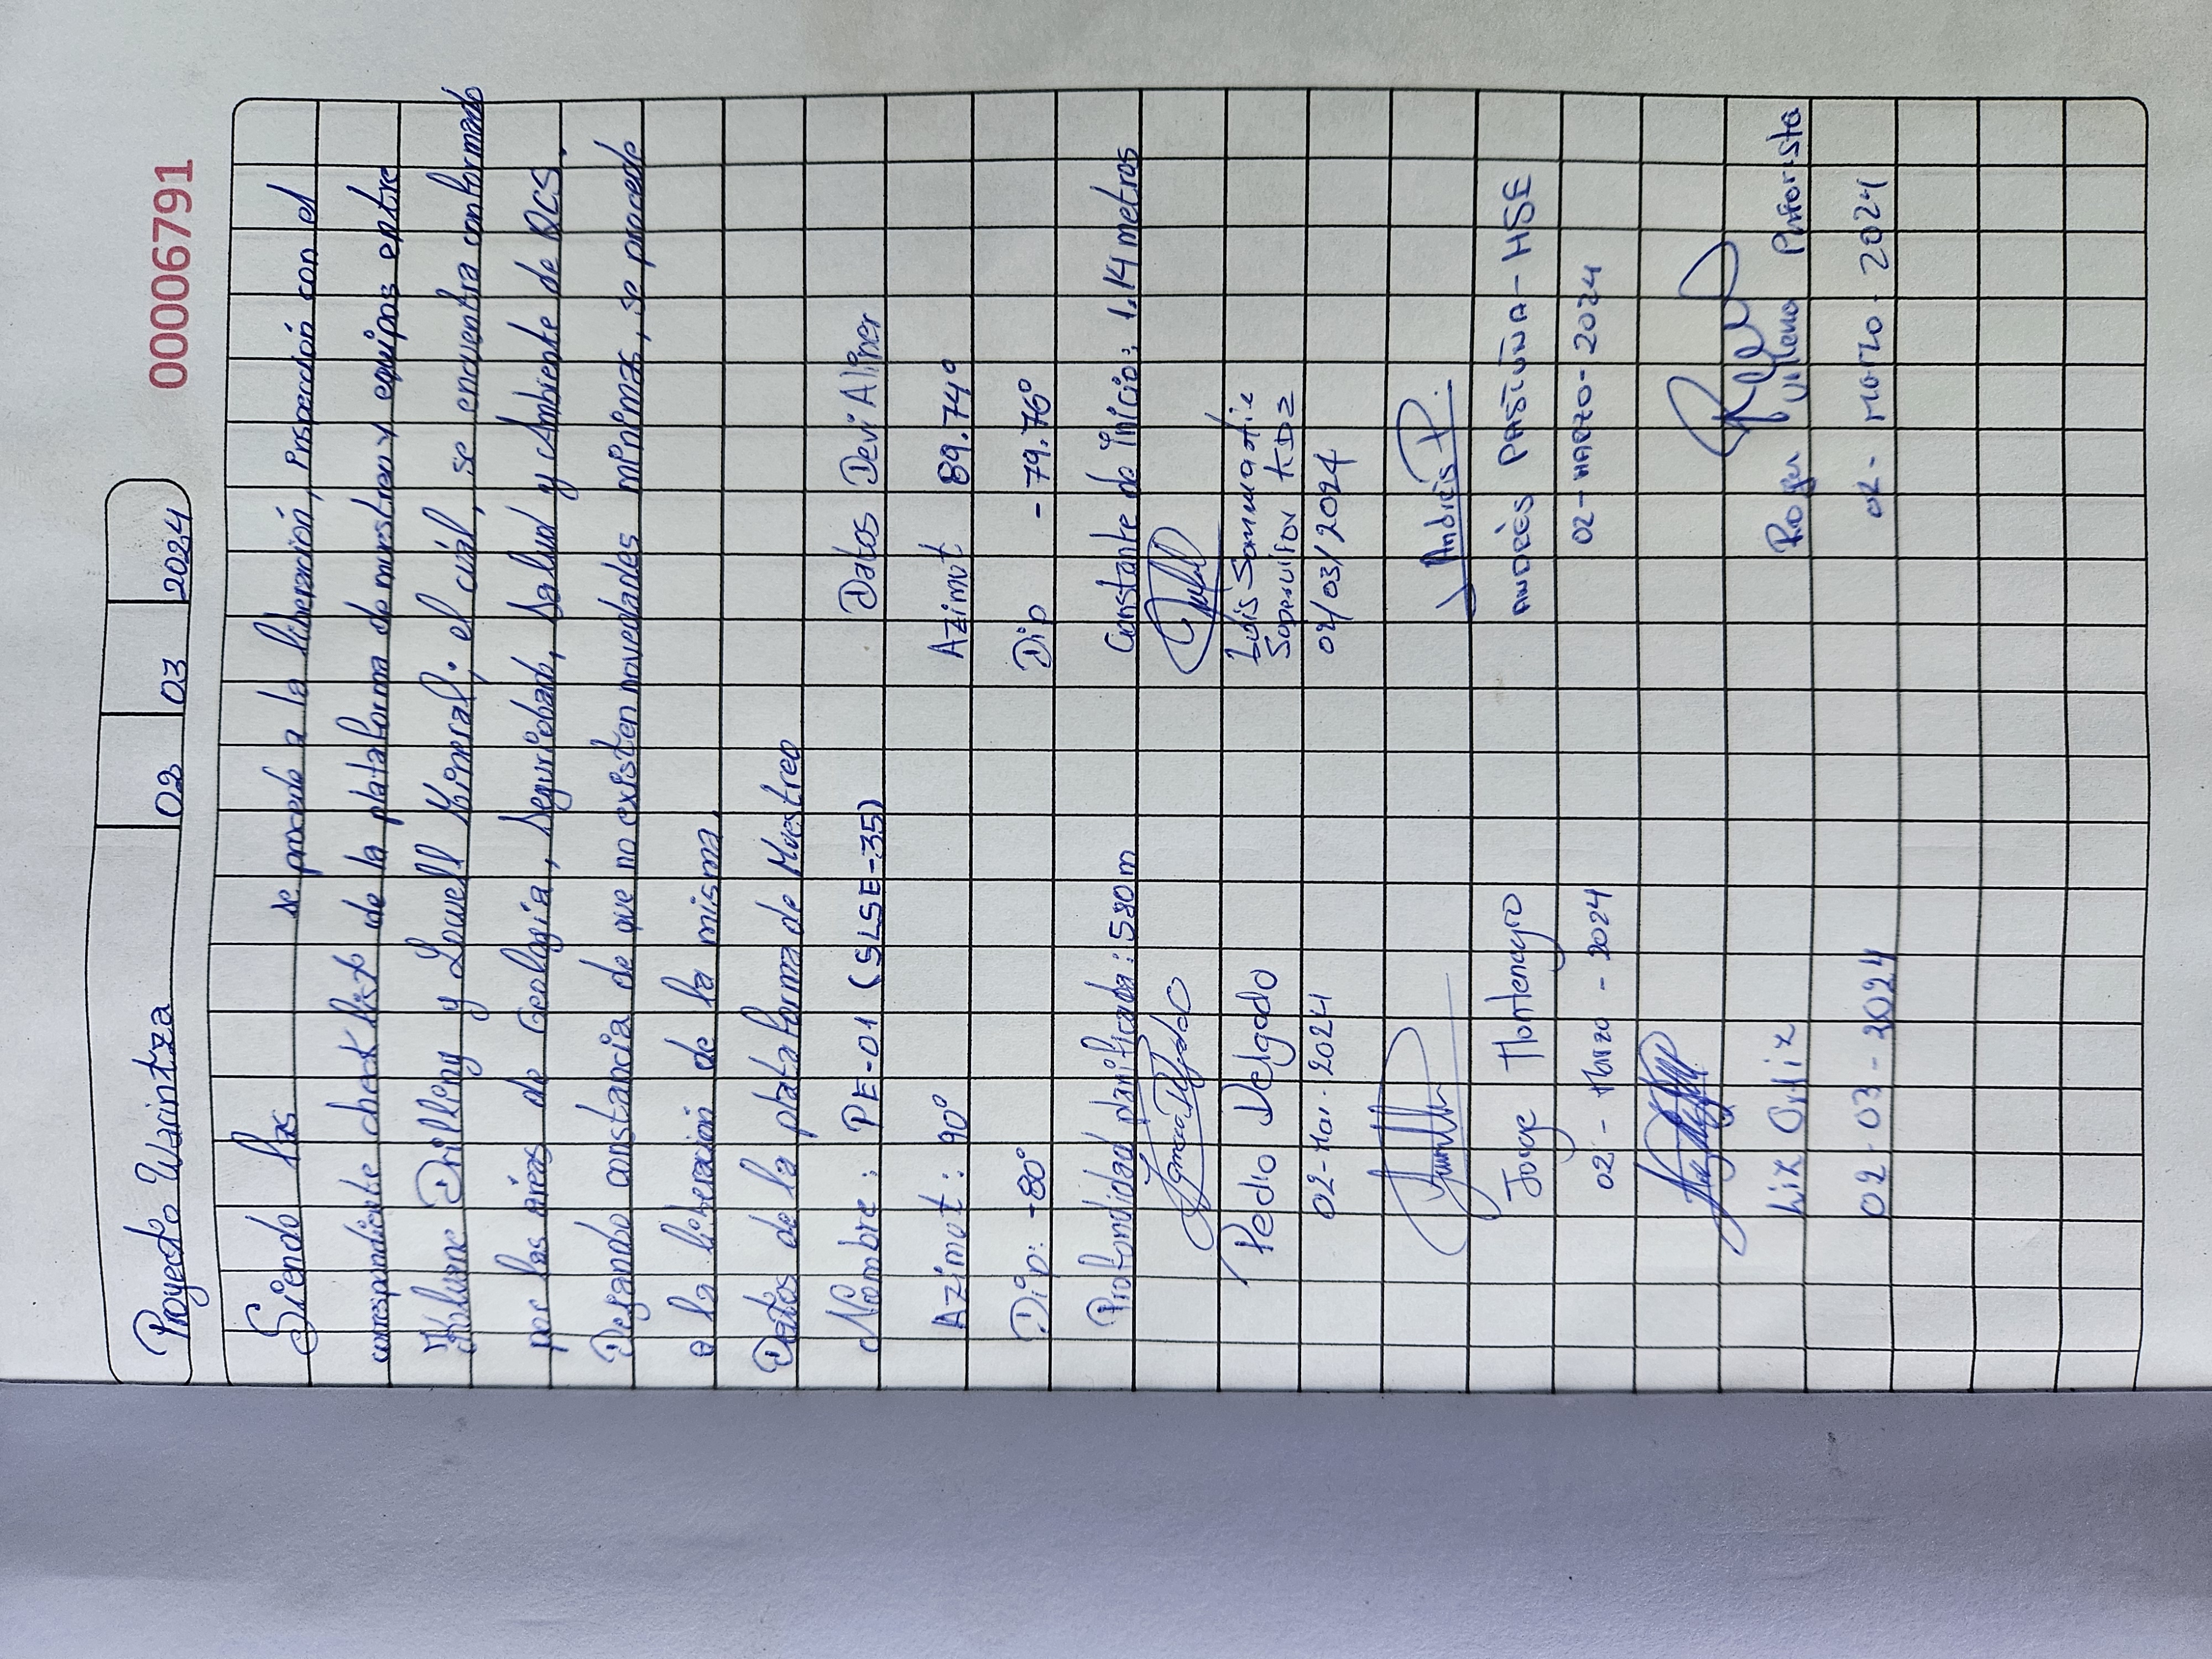 00006791
Proyecto Warintza 02 03 2024
Siendo las se procede a la liberación, Inspección con el
correspondiente check list de la plataforma de muestreo y equipos entre
Kluane Drilling y Lowell Mineral; el cuál, se encuentra conformado
por las áreas de Geología, Seguridad, Salud y Ambiente de RCS.
Dejando constancia de que no existen novedades mínimas, se procede
a la liberación de la misma.
Datos de la plataforma de Muestreo
Nombre: PE-01 (SLSE-35) Datos DeviAliner
Azimut: 90° Azimut 89.74°
Dip: -80° Dip -79.76°
Profundidad planificada: 580m Constante de Inicio: 1,14 metros
Pedro Delgado Luis Sammartin
02-Mar-2024 Supervisor KDZ
02/03/2024
Andrés P.
Jorge Montenegro ANDRÉS PATIÑO-HSE
02-Marzo-2024 02-MARZO-2024
Liz Ortiz Roger Villena Perforista
02-03-2024 02-Marzo-2024